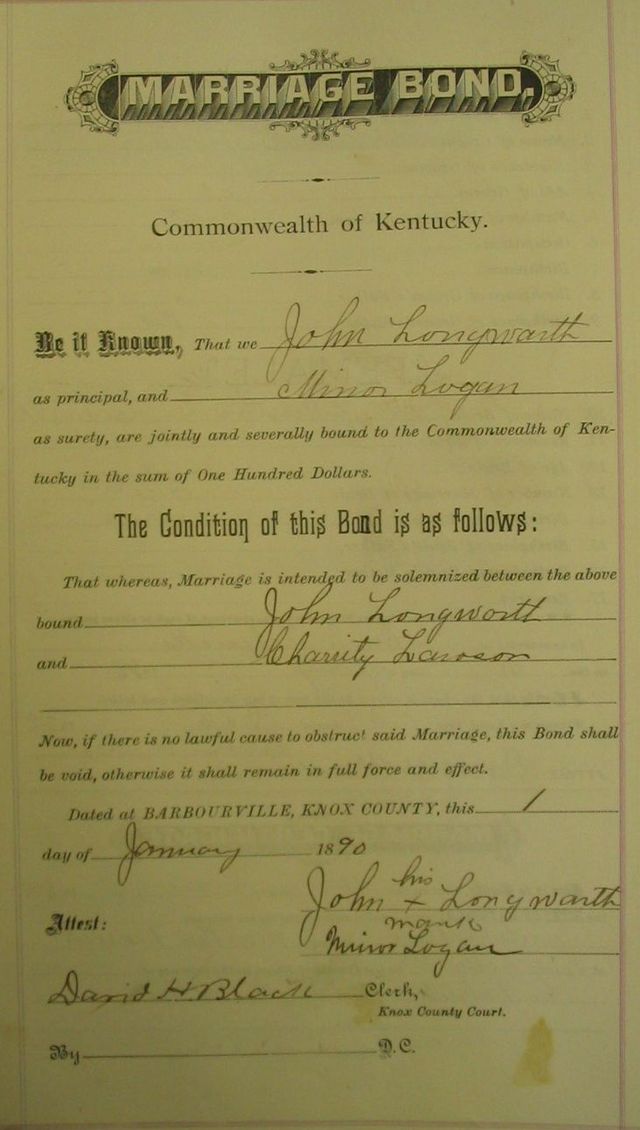 MARRIAGE BOND.
Commonwealth of Kentucky.
Be it Known, That we John Longwarth
as principal, and Minor Logan
as surety, are jointly and severally bound to the Commonwealth of Ken-
tucky in the sum of One Hundred Dollars.
The Condition of this Bond is as follows:
That whereas, Marriage is intended to be solemnized between the above
bound John Longworth
and Charity Lawson
Now, if there is no lawful cause to obstruct said Marriage, this Bond shall
be void, otherwise it shall remain in full force and effect.
Dated at BARBOURVILLE, KNOX COUNTY, this 1
day of January 1890
his
John + Longwarth
Attest: mark
Minor Logan
David H Black Clerk,
Knox County Court.
By D.C.